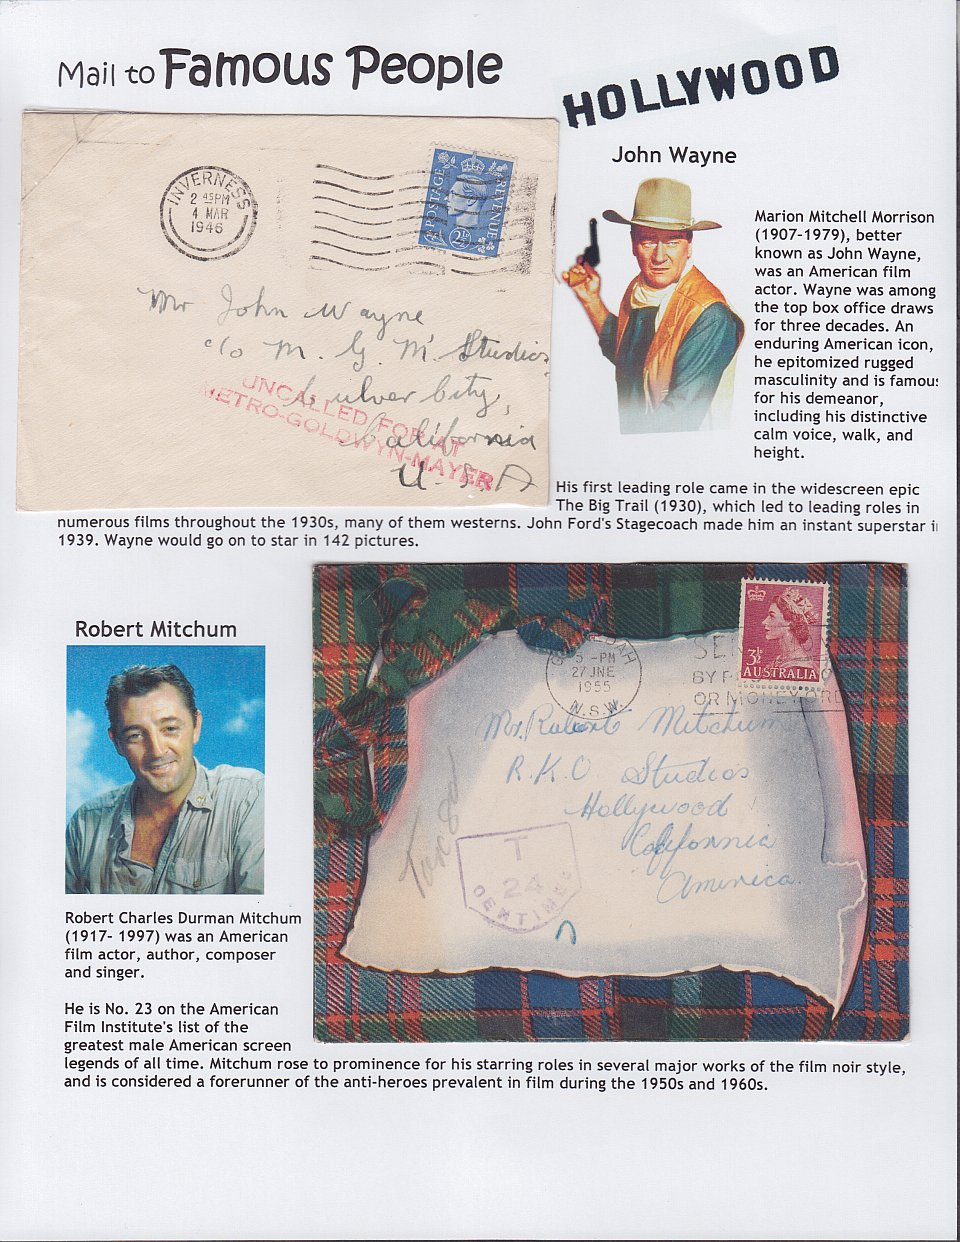 Mail to Famous People
HOLLYWOOD
John Wayne
INVERNESS
2 45PM
4 MAR
1946
POSTAGE
REVENUE
2½
Mr John Wayne
c/o M. G. M Studios
Culver City,
California
U.S.A
UNCALLED FOR AT
METRO-GOLDWYN-MAYER
Marion Mitchell Morrison
(1907-1979), better
known as John Wayne,
was an American film
actor. Wayne was among
the top box office draws
for three decades. An
enduring American icon,
he epitomized rugged
masculinity and is famous
for his demeanor,
including his distinctive
calm voice, walk, and
height.
His first leading role came in the widescreen epic
The Big Trail (1930), which led to leading roles in
numerous films throughout the 1930s, many of them westerns. John Ford's Stagecoach made him an instant superstar i
1939. Wayne would go on to star in 142 pictures.
Robert Mitchum
5 -PM
27 JNE
1955
N.S.W.
SEN
BY POS
OR MONEY ORD
3½
AUSTRALIA
Mr. Robert Mitchum
R.K.O Studios
Hollywood
California
America.
Taxed
T
24
CENTIMES
Robert Charles Durman Mitchum
(1917- 1997) was an American
film actor, author, composer
and singer.
He is No. 23 on the American
Film Institute's list of the
greatest male American screen
legends of all time. Mitchum rose to prominence for his starring roles in several major works of the film noir style,
and is considered a forerunner of the anti-heroes prevalent in film during the 1950s and 1960s.